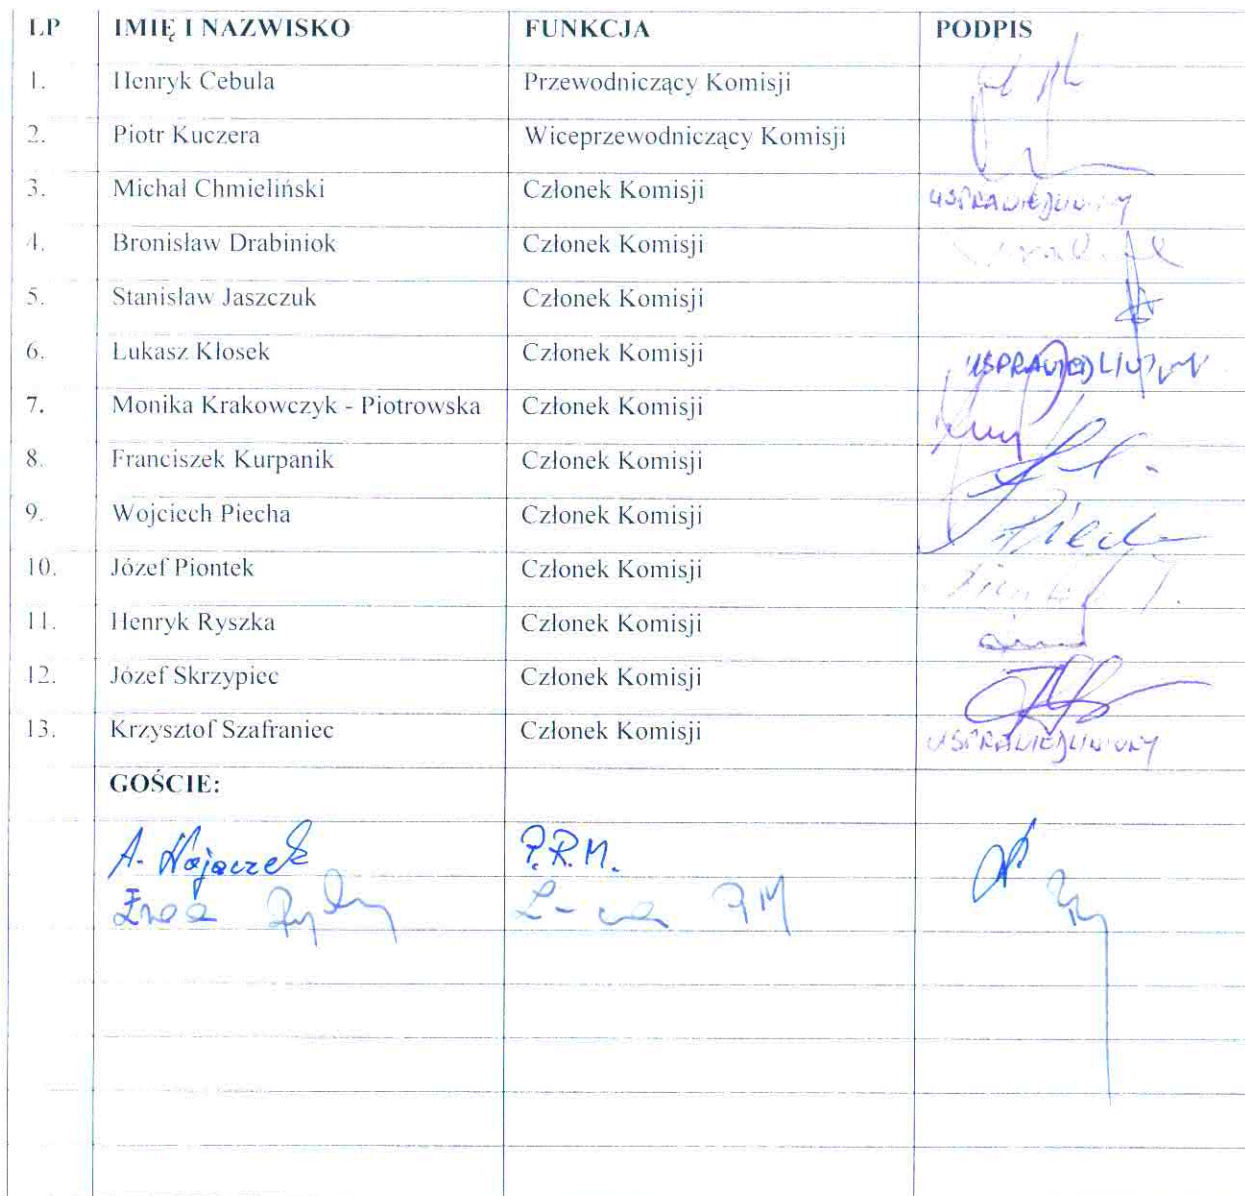 LP IMIĘ I NAZWISKO FUNKCJA PODPIS
1. Henryk Cebula Przewodniczący Komisji
2. Piotr Kuczera Wiceprzewodniczący Komisji
3. Michał Chmieliński Członek Komisji USPRAWIEDLIWIONY
4. Bronisław Drabiniok Członek Komisji
5. Stanisław Jaszczuk Członek Komisji
6. Łukasz Kłosek Członek Komisji USPRAWIEDLIWIONY
7. Monika Krakowczyk - Piotrowska Członek Komisji
8. Franciszek Kurpanik Członek Komisji
9. Wojciech Piecha Członek Komisji Piecha
10. Józef Piontek Członek Komisji
11. Henryk Ryszka Członek Komisji
12. Józef Skrzypiec Członek Komisji
13. Krzysztof Szafraniec Członek Komisji USPRAWIEDLIWIONY
GOŚCIE:
A. Wojaczek P.R.M.
PM